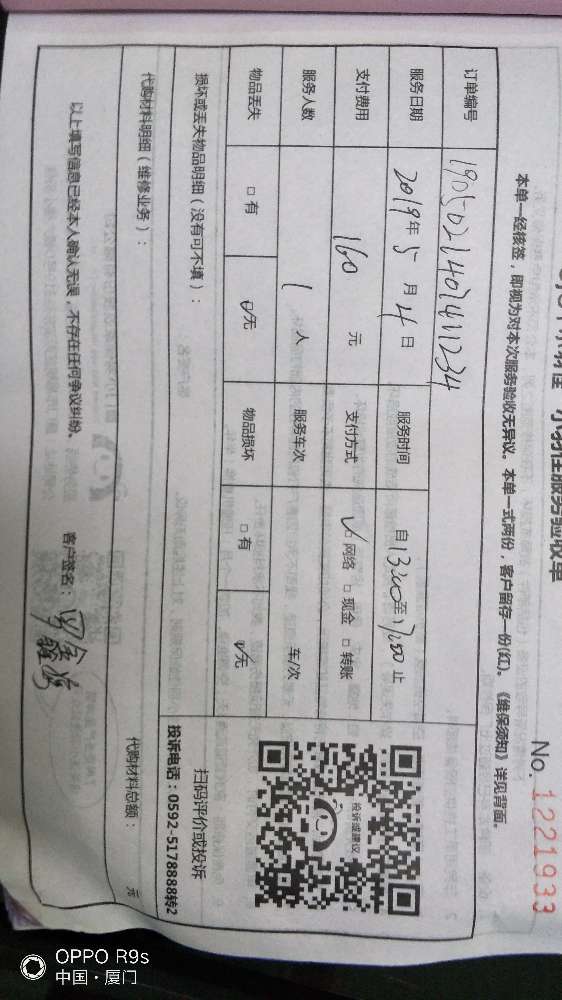 小羽佳服务验收单
No. 1221933
本单一经核签，即视为对本次服务验收无异议。本单一式两份，客户留存一份(红)。《维保须知》详见背面。
订单编号 190502140741 1234
服务日期 2019年 5 月 4 日 服务时间 自 13:00 至 17:00 止
支付费用 160 元 支付方式 ☑ 网络 □ 现金 □ 转账
服务人数 1 人 服务车次 车/次
物品丢失 □ 有 ☑ 无 物品损坏 □ 有 ☑ 无
投诉或建议
扫码评价或投诉
投诉电话：0592-5178888转2
损坏或丢失物品明细（没有可不填）：
代购材料明细（维修业务）：
代购材料总额： 元
以上填写信息已经本人确认无误，不存在任何争议纠纷。
客户签名：
OPPO R9s
中国·厦门